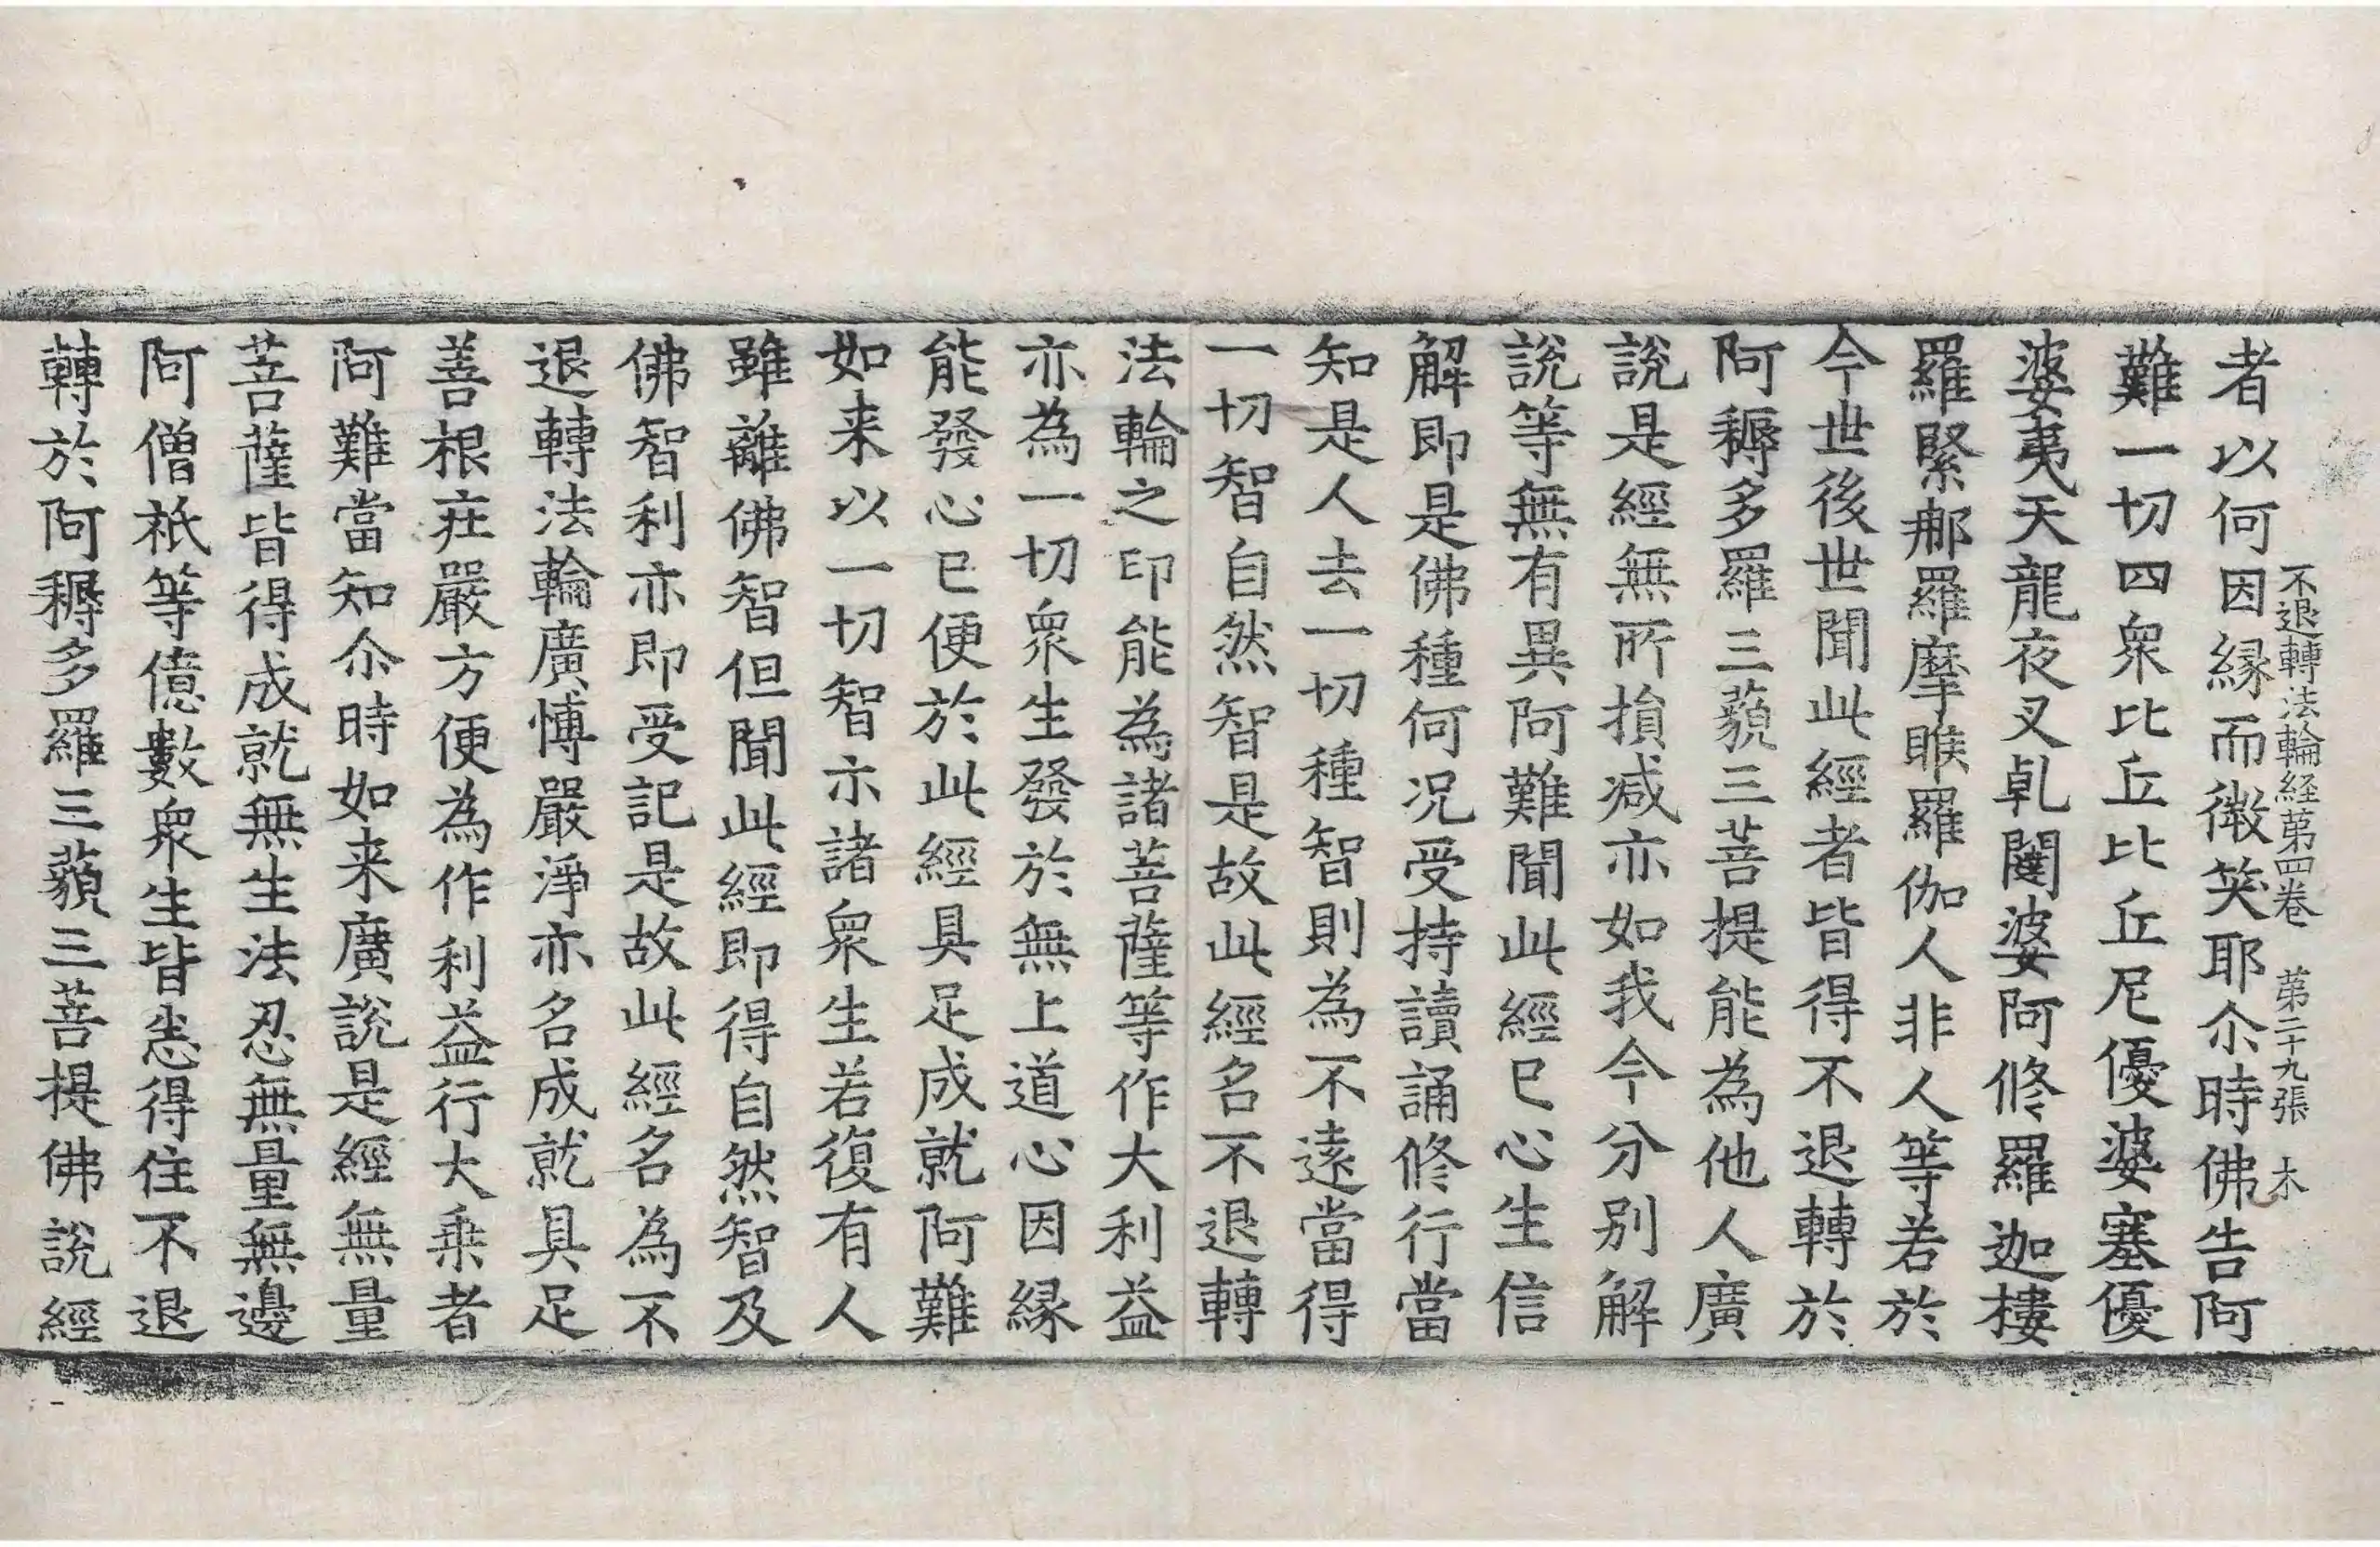 不退轉法輪経苐四巻　苐二十九張　木
者以何因縁而微笑耶尒時佛告阿
難一切四衆比丘比丘尼優婆塞優
婆夷天龍夜叉乹闥婆阿修羅迦樓
羅緊那羅摩睺羅伽人非人等若於
今世後世聞此經者皆得不退轉於
阿耨多羅三藐三菩提能為他人廣
說是經無所損减亦如我今分别解
說等無有異阿難聞此經已心生信
解即是佛種何况受持讀誦修行當
知是人去一切種智則為不遠當得
一切智自然智是故此經名不退轉
法輪之印能為諸菩薩等作大利益
亦為一切衆生發於無上道心因縁
能發心已便於此經具足成就阿難
如来以一切智示諸衆生若復有人
雖離佛智但聞此經即得自然智及
佛智利亦即受記是故此經名為不
退轉法輪廣愽嚴淨亦名成就具足
善根莊嚴方便為作利益行大乗者
阿難當知尒時如来廣說是經無量
菩薩皆得成就無生法忍無量無邊
阿僧祇等億數衆生皆悉得住不退
轉於阿耨多羅三藐三菩提佛說經